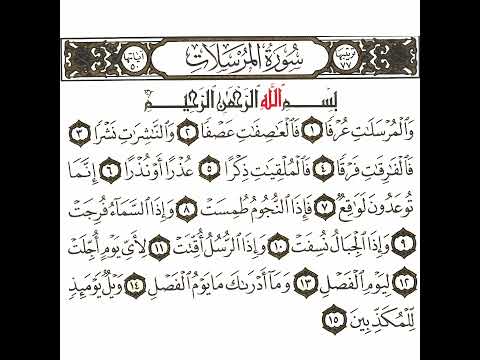 ترتيبها ٧٧ سُورَةُ الْمُرْسَلَاتِ آياتها ٥٠
بِسْمِ اللَّهِ الرَّحْمَٰنِ الرَّحِيمِ
وَالْمُرْسَلَاتِ عُرْفًا ١ فَالْعَاصِفَاتِ عَصْفًا ٢ وَالنَّاشِرَاتِ نَشْرًا ٣
فَالْفَارِقَاتِ فَرْقًا ٤ فَالْمُلْقِيَاتِ ذِكْرًا ٥ عُذْرًا أَوْ نُذْرًا ٦ إِنَّمَا
تُوعَدُونَ لَوَاقِعٌ ٧ فَإِذَا النُّجُومُ طُمِسَتْ ٨ وَإِذَا السَّمَاءُ فُرِجَتْ
٩ وَإِذَا الْجِبَالُ نُسِفَتْ ١٠ وَإِذَا الرُّسُلُ أُقِّتَتْ ١١ لِأَيِّ يَوْمٍ أُجِّلَتْ
١٢ لِيَوْمِ الْفَصْلِ ١٣ وَمَا أَدْرَاكَ مَا يَوْمُ الْفَصْلِ ١٤ وَيْلٌ يَوْمَئِذٍ
لِلْمُكَذِّبِينَ ١٥